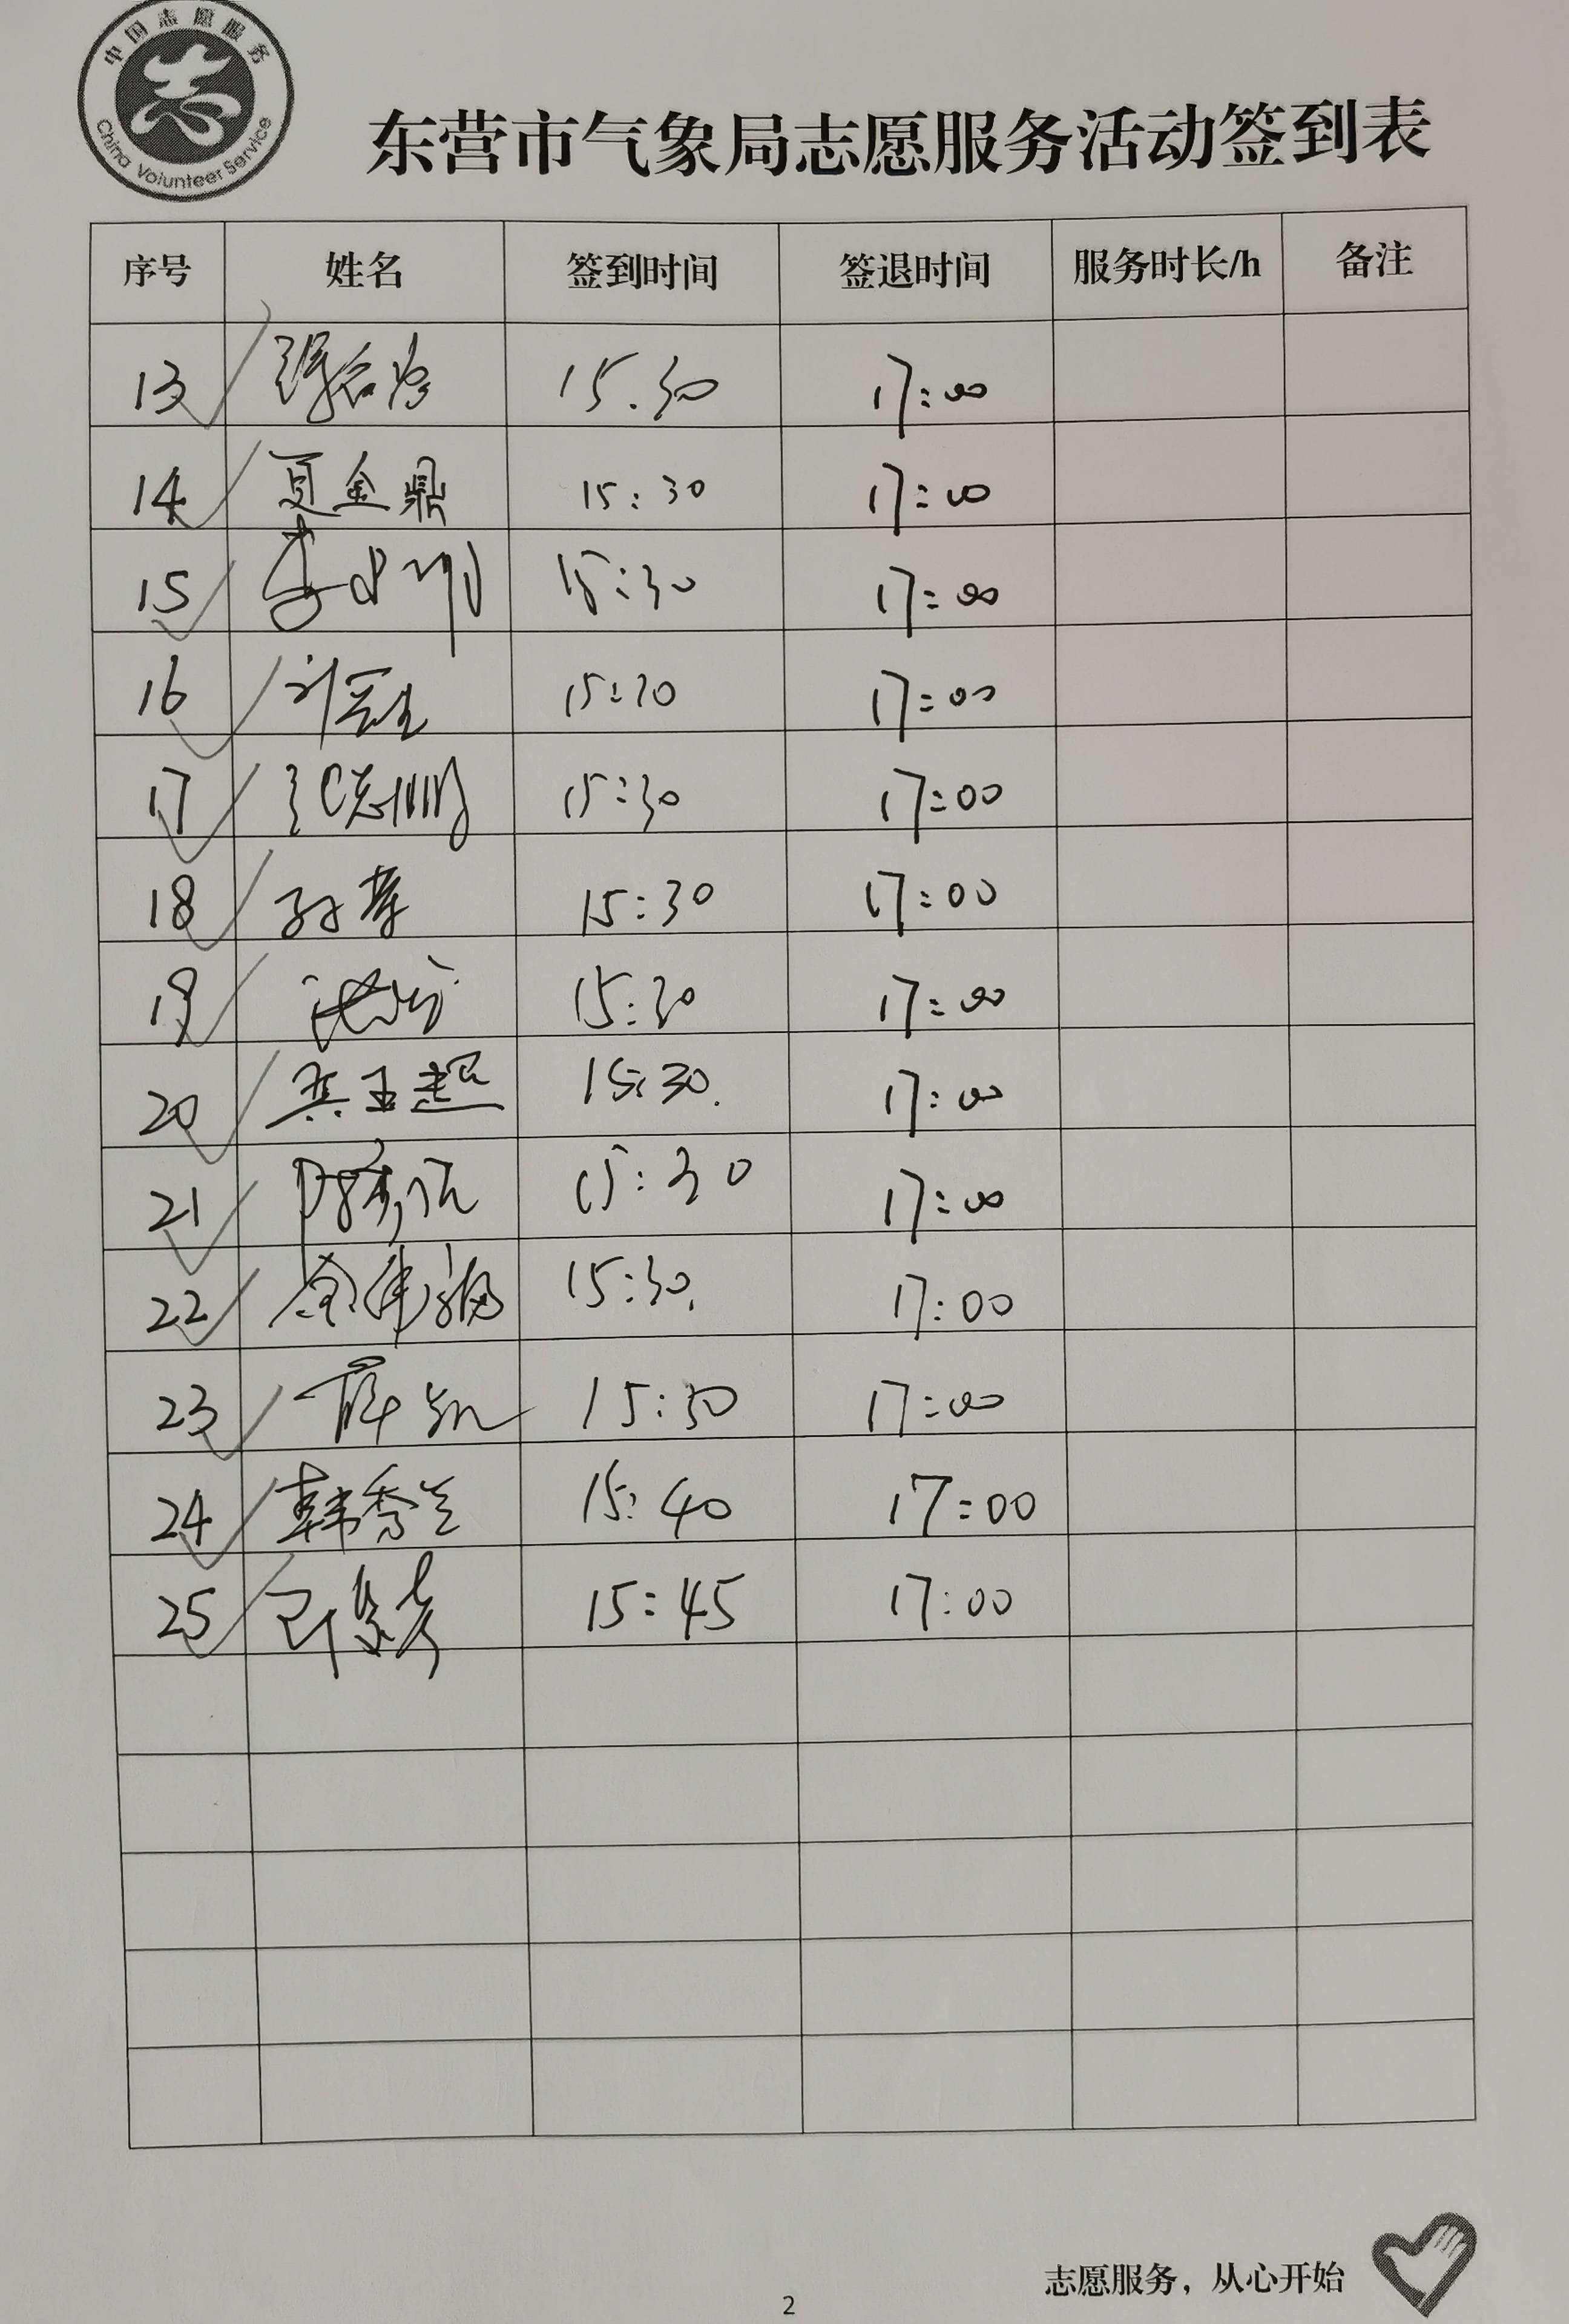 中国志愿服务
China Volunteer Service
东营市气象局志愿服务活动签到表
序号 姓名 签到时间 签退时间 服务时长/h 备注
13 15.30 17:00
14 夏金鼎 15:30 17:00
15 15:30 17:00
16 15:30 17:00
17 15:30 17:00
18 15:30 17:00
19 15:30 17:00
20 15:30. 17:00
21 15:30 17:00
22 15:30. 17:00
23 薛凯 15:30 17:00
24 韩秀兰 15:40 17:00
25 15:45 17:00
志愿服务，从心开始
2